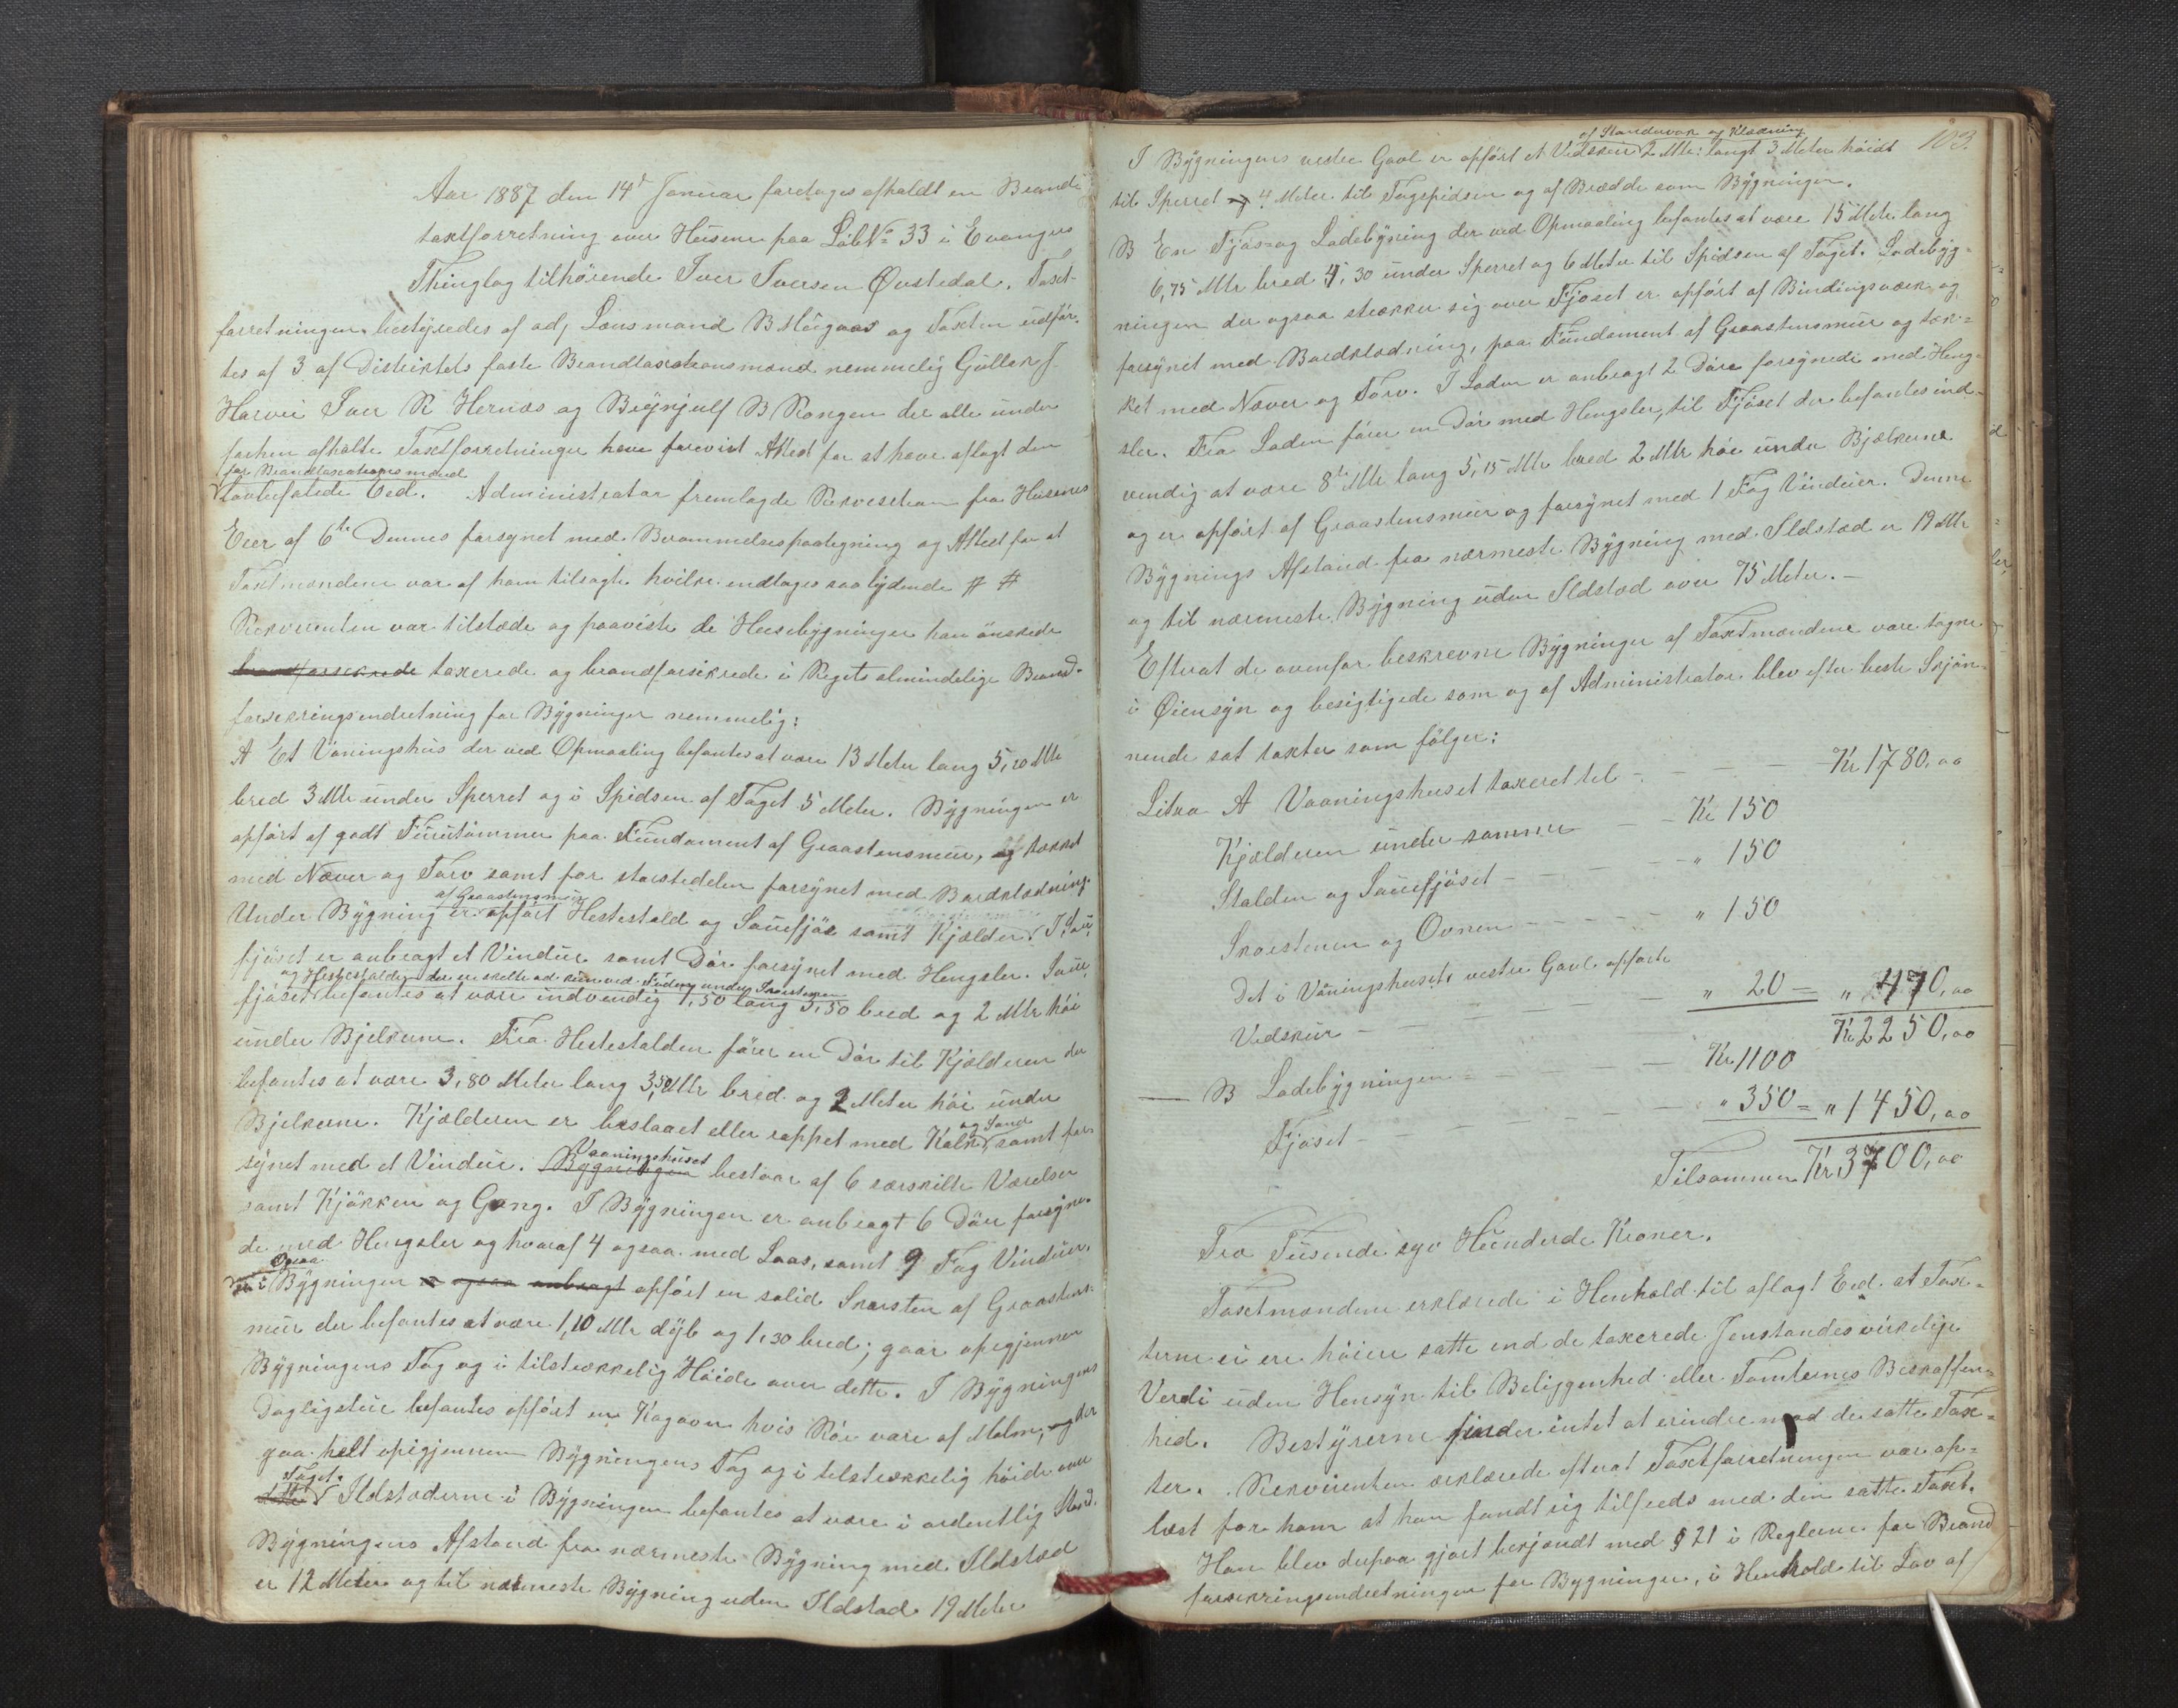 Aar 1887 den 14d Januar foretoges afholdt en Brand-
taxtforretning over Husene paa LøbNo 33 i Evanger
Thinglag tilhörende Iver Iversen Øvstedal. Taxt-
forretningen bestyredes af adj Lensmand B Mugaas og Taxten udför-
tes af 3 af Distriktets faste Brandtaxationsmænd nemmelig Gullek J
Horvei Iver K Hernæs og Brynjulf B Rongen der alle under
forhen afholte Taxtforretninger have forevist Attest for at have aflagt den
for Brandtaxationsmænd
lovbefalede Eed. Administrator fremlagde Rekvisition fra Husenes
Eier af 6te Dennes forsynet med Berammelsespaategning og Attest for at
Taxtmændene var af ham tilsagte hvilke indtages saalydende # #
Rekvirenten var tilstæde og paaviste de Husebygninger han önskede
brandforsikrede taxerede og brandforsikrede i Rigets almindelige Brand-
forsikringsindretning for Bygninger nemmelig:
A Et Vöningshus der ved Opmaaling befantes at være 13 Meter lang 5,20 Mtr
bred 3 Mtr under Sperret og i Spidsen af Taget 5 Meter. Bygningen er
opfört af godt Furutömmer paa Fundament af Graastensmuur, og tækket
med Næver og Torv samt for störstedelen forsynet med Bordklædning.
af Graastensmuur
Under Bygning er opfört Hestestald og Sauefjös samt Kjælder. I Saue-
fjöset er anbragt et Vindue samt Dör forsynet med Hengsler. Saue-
og Hestestalden der er skilte ad kun ved Muren under Skorstenen
fjöset befantes at være indvendig 1,50 lang 3,50 bred og 2 Mtr höi
under Bjelkerne. Fra Hestestalden förer en Dör til Kjælderen der
befantes at være 3,80 Meter lang 3,50 Mtr bred og 2 Meter höi under
Bjelkerne. Kjælderen er beslaaet eller rappet med Kalk samt for-
og Sand
synet med et Vindue. Bygningen bestaar af 6 særskilte Værelser
Vaaningshuset
samt Kjökken og Gang. I Bygningen er anbragt 6 Döre forsyne-
de med Hengsler og hvoraf 4 ogsaa med Laas, samt 9 Fag Vinduer.
Ogsaa
i Bygningen er ogsaa anbragt opfört en solid Skorsten af Graastens-
muur der befantes at være 1,10 Mtr dyb og 1,30 bred; gaar opigjennem
Bygningens Tag og i tilstrækkelig Höide over dette. I Bygningens
Dagligstue befantes opfört en Kagovn hvis Rör være af Malm, og der
gaa helt opigjennem Bygningens Tag og i tilstrækkelig höide over
Taget.
dette Ildstæderne i Bygningen befantes at være i ordentlig Stand.
Bygningens Afstand fra nærmeste Bygning med Ildstæd
er 12 Meter og til nærmeste Bygning uden Ildstad 19 Meter
103.
af Standevæk og Klædning
I Bygningens vestre Gavl er opfört et Vedskur 2 Mtr: langt 3 Meter höidt
til Sperret og 4 Meter til Tagspidsen og af Brædde som Bygningen.
B En Fjös- og Ladebygning der ved Opmaaling befantes at være 15 Metr lang
6,75 Mtr bred 4,30 under Sperret og 6 Meter til Spidsen af Taget. Ladebyg-
ningen der ogsaa strækker sig over Fjöset er opfört af Bindingsværk og
forsynet med Bordklædning, paa Fundament af Graastensmuur og tæk-
ket med Næver og Torv. I Laden er anbragt 2 Döre forsynede med Heng-
sler. Fra Laden förer en Dör med Hengsler, til Fjöset der befantes ind-
vendig at være 8te Mtr lang 5,15 Mtr bred 2 Mtr höi under Bjælkerne
og er opfört af Graastensmuur og forsynet med 1 Fag Vinduer. Denne
Bygnings Afstand fra nærmeste Bygning med Ildstæd er 19 Mtr
og til nærmeste Bygning uden Ildstæd over 75 Meter.—
Efterat de ovenfor beskrevne Bygninger af Taxtmændene vare tagne
i Øiensyn og besigtigede som og af Administrator blev efter beste Skjön-
nende sat taxter som fölger:
Litra A Vaaningshuset taxeret til - Kr 1780,00
Kjælderen under samme - Kr 150
Stalden og Sauefjöset - " 150
Skorstenen og Ovnen - " 150
Det i Våningshusets vestre Gavl opförte
Vedskur - " 20 = " 470,00
Kr 2250,00
— B Ladebygningen - Kr 1100
Fjöset - " 350 = " 1450,00
Tilsammen Kr 3700,00
Tre Tusende syv Hunderde Kroner.
Taxtmændene erklærede i Henhold til aflagt Eed at Tax-
terne ei ere höiere satte end de taxerede Jenstandes virkelige
Verdi uden Hensyn til Beliggenhed eller Tomternes Beskaffen-
hed. Bestyrerne finder intet at erindre mod de satte Tax-
ter. Rekvirenten erklærede efterat Taxtforretningen var op-
læst for ham at han fandt sig tilfreds med den satte Taxt.
Han blev derpaa gjort bekjendt med § 21 i Reglerne for Brand
forsikringsindretningen for Bygninger, i Henhold til Lov af